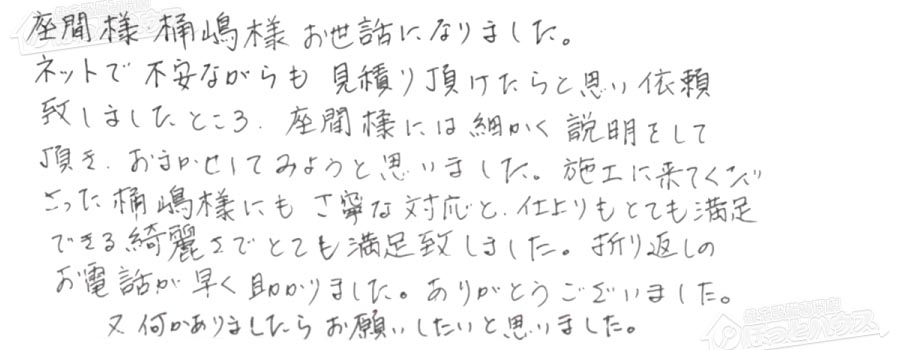 座間様・桶嶋様 お世話になりました。
ネットで 不安ながらも 見積り頂けたらと思い依頼
致しましたところ、座間様には細かく説明をして
頂き、おまかせしてみようと思いました。施工に来てくだ
さった桶嶋様にも丁寧な対応と、仕上りもとても満足
できる綺麗さでとても満足致しました。折り返しの
お電話が早く助かりました。ありがとうございました。
又何かありましたらお願いしたいと思いました。
ほっとハウス